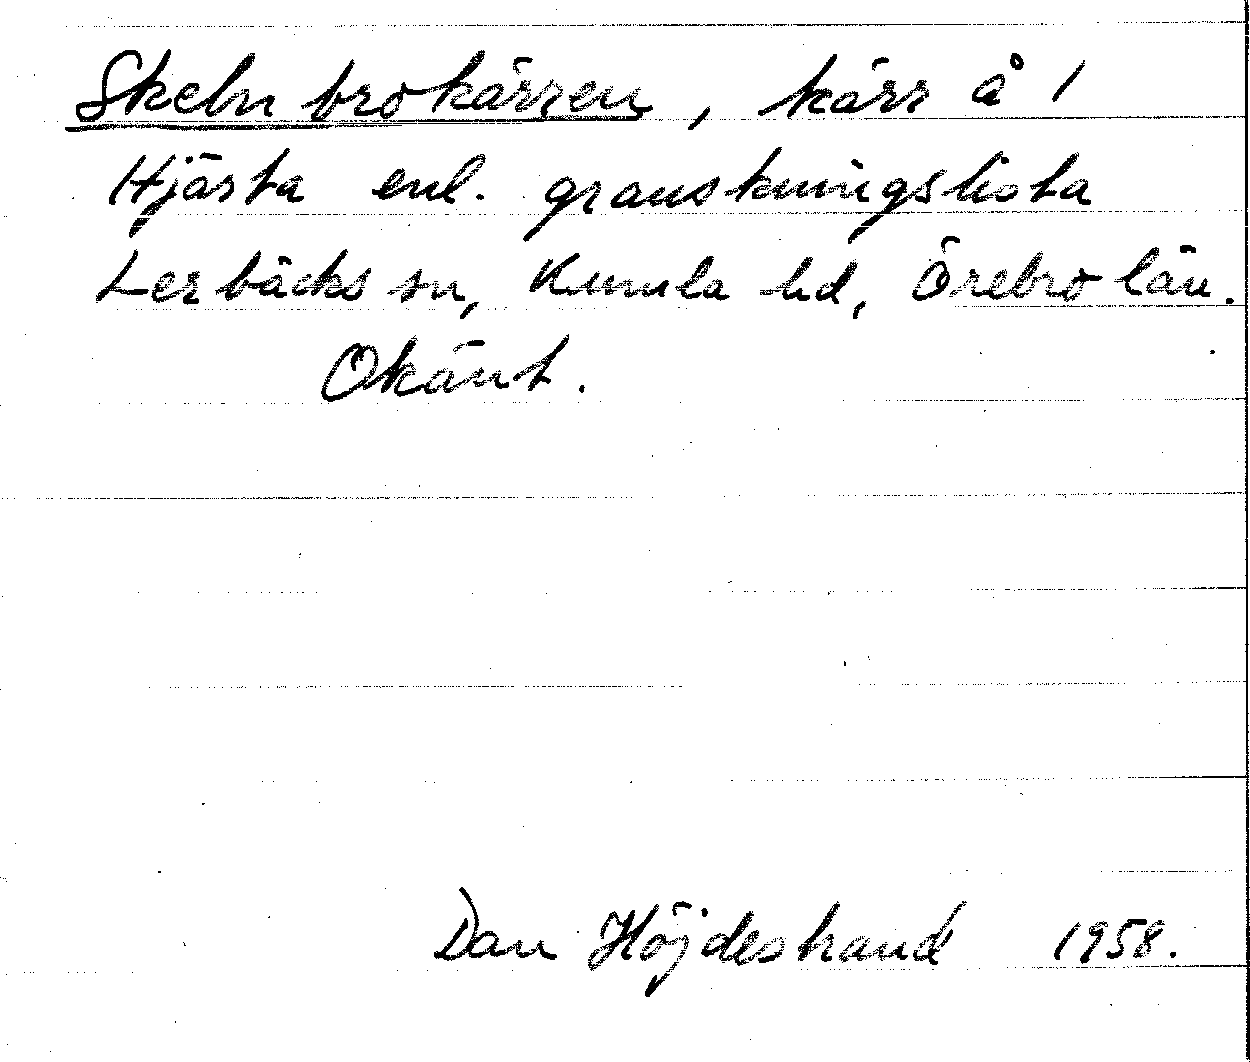 Skebn brokärren, kärr å 1
Hjärta enl. granskningslista
Lerbäcks sn, Kumla hd, Örebro län.
Okänt.
Dan Höjdestrand 1958.